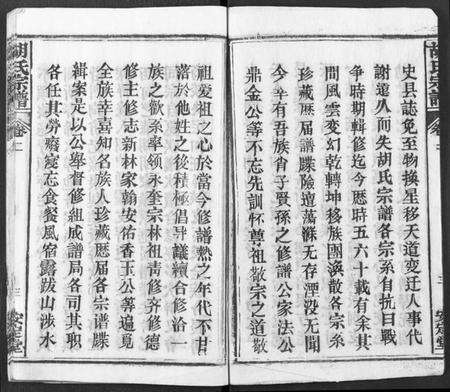 胡氏宗譜
史县誌免至物換星移天道变迁人事代
謝遠久而失胡氏宗譜各宗系自抗日戰
争時期輯修迄今歷時五六十載有余其
間風雲变幻乾轉坤移族團渙散各宗系
珍藏歷屆譜牒險遭蕩滌無存湮没無聞
今幸有吾族肖子賢孫之修譜公家法公
鼎金公等不忘先訓怀尊祖敬宗之道敬
安定堂
祖爱祖之心於當今修譜热之年代不甘
落於他姓之後積極倡导議續合修洽一
族之歡系率领永奎宗林祖青修齐修德
修主修志新林家翰安佑香玉公等遍覓
全族幸喜知名族人珍藏歷屆各宗谱牒
緝案是以公举督修組成譜局各司其职
各任其勞癈寢忘食餐風宿露跋山涉水
胡氏宗譜
卷上
安定堂